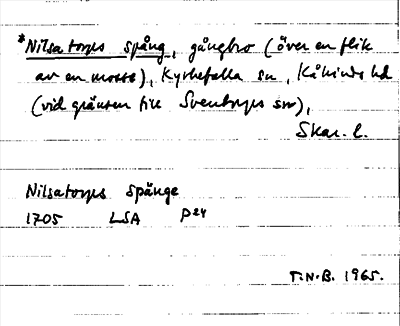 *Nilsatorps spång, gångbro (över en flik
av en mosse), Kyrkefalla sn, Kåkinds hd
(vid gränsen till Sventorps sn),
Skar. l.
Nilsatorps Spånge
1705 LSA P24
T.N.B. 1965.